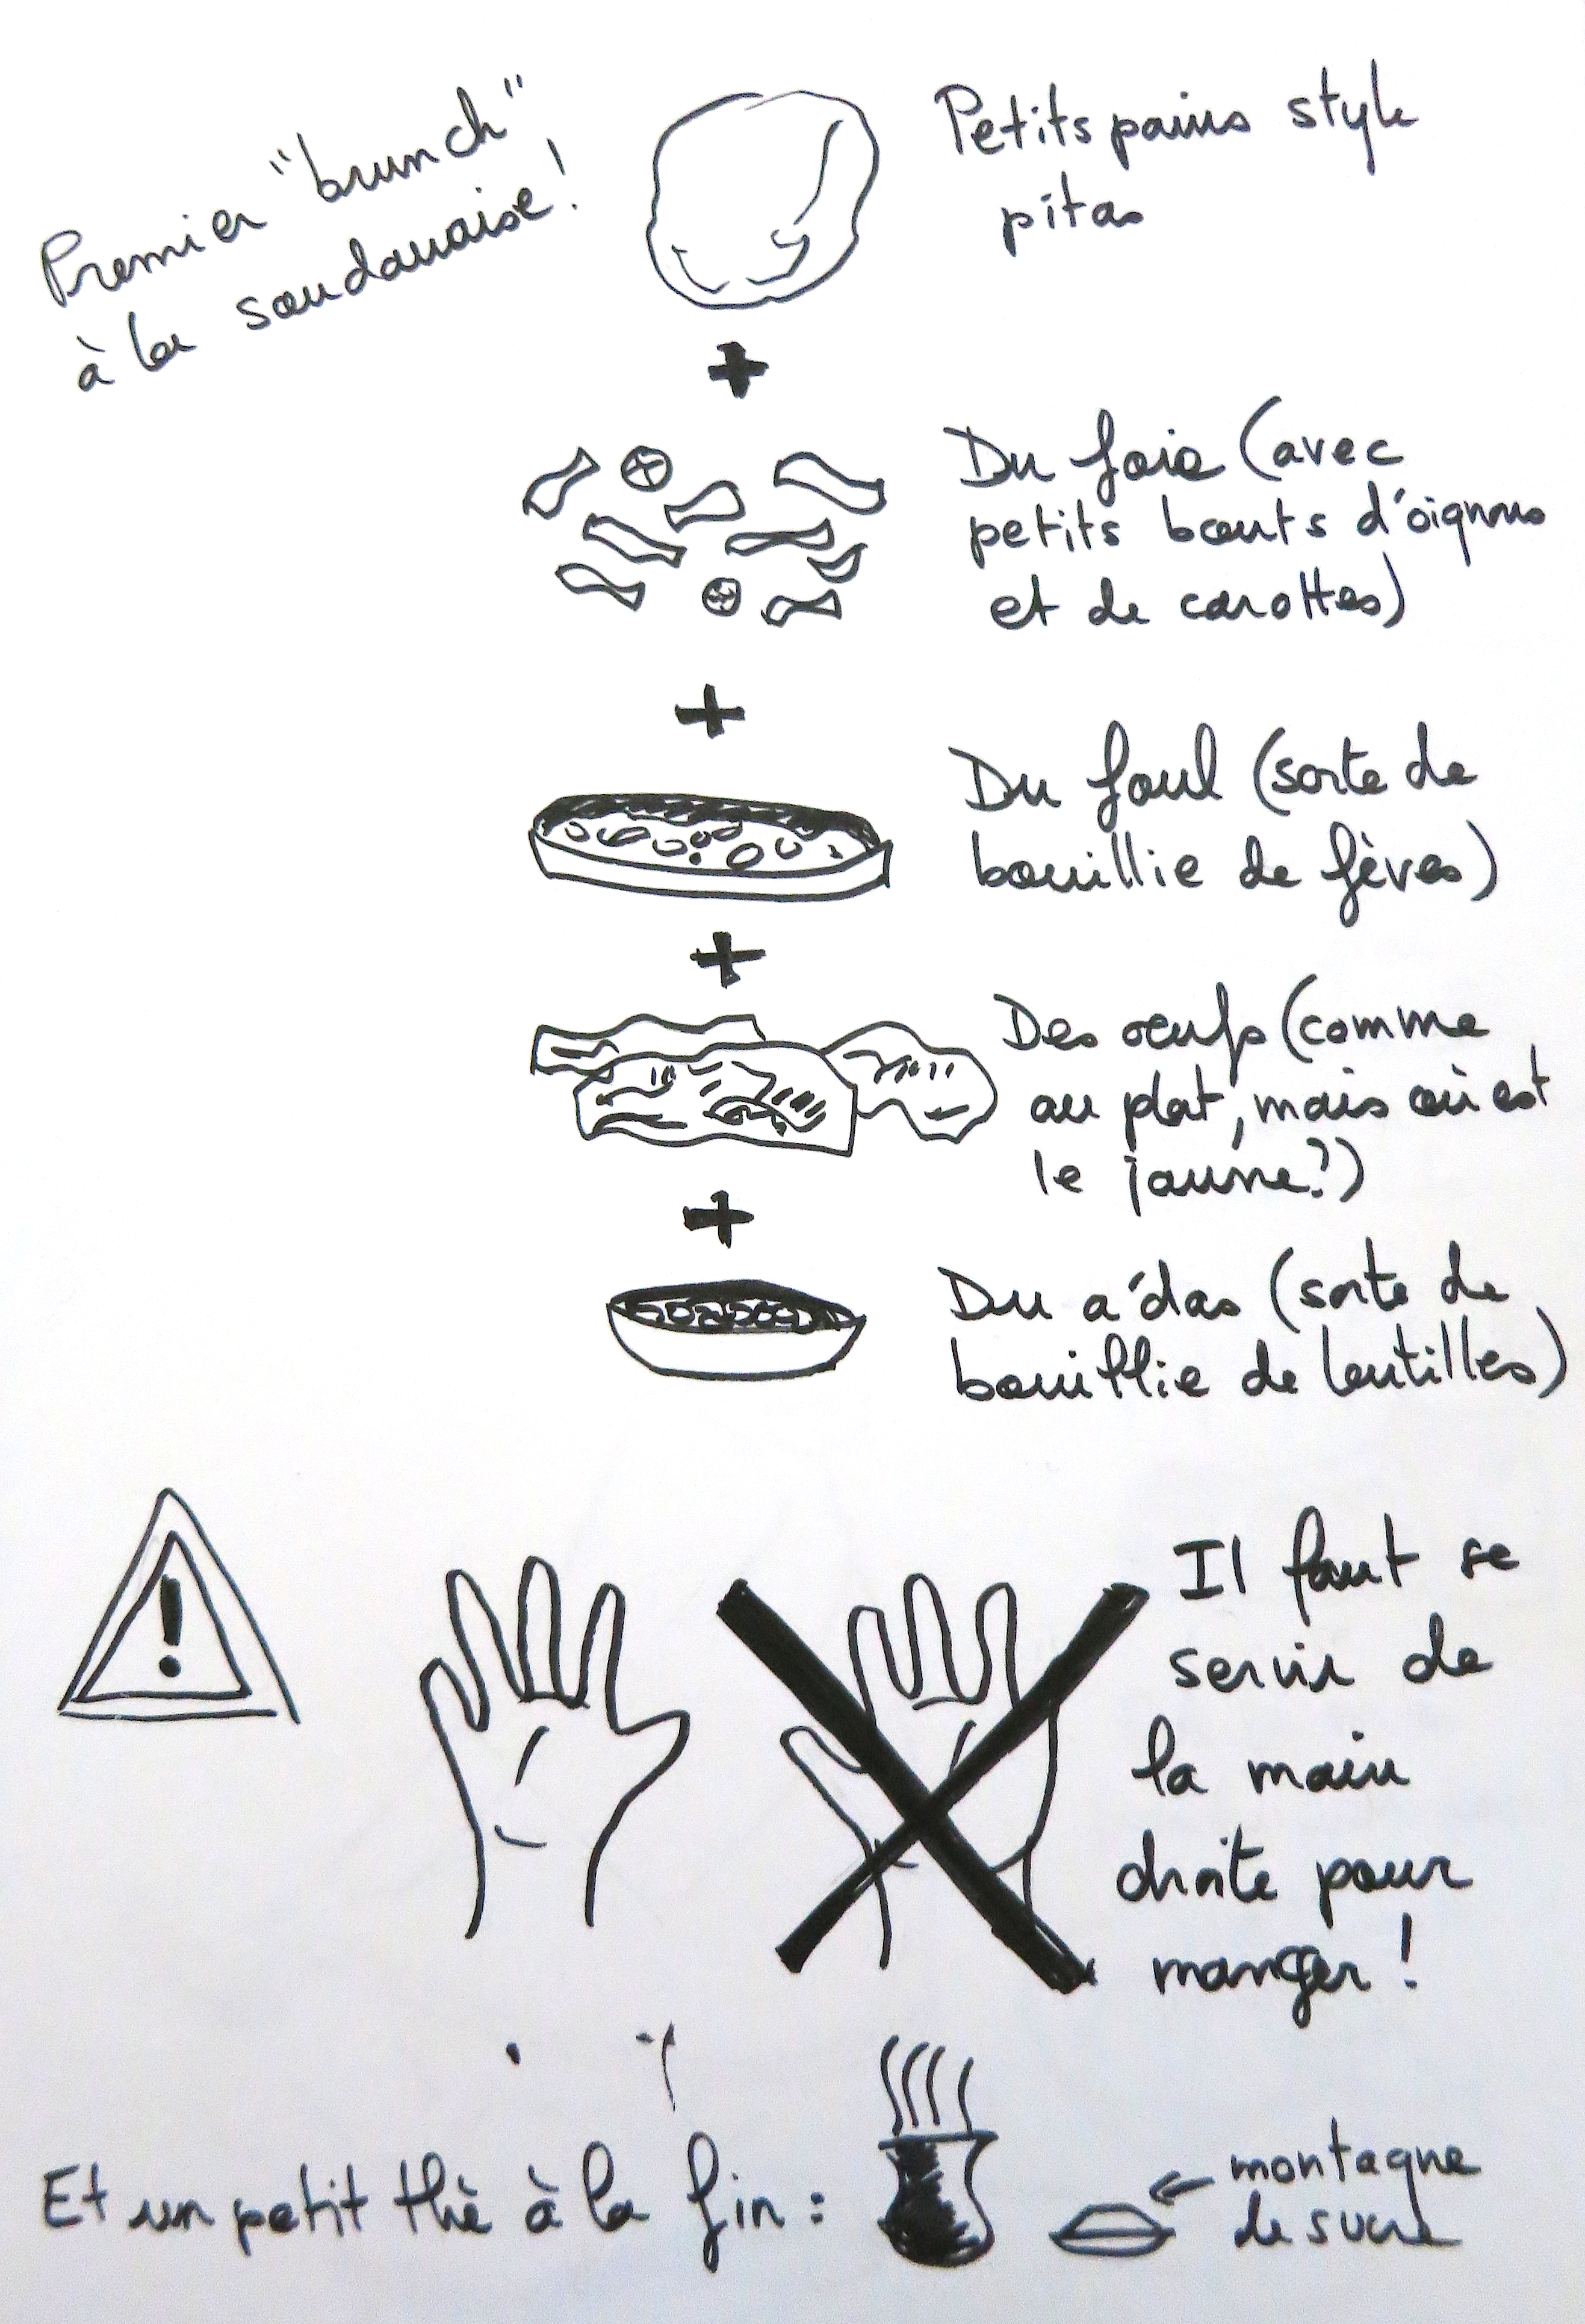 Premier "brunch"
à la soudanaise!
Petits pains style
pitas
Du foie (avec
petits bouts d'oignons
et de carottes)
Du foul (sorte de
bouillie de fèves)
Des oeufs (comme
au plat, mais où est
le jaune?)
Du a'das (sorte de
bouillie de lentilles)
Il faut se
servir de
la main
droite pour
manger!
Et un petit thé à la fin :
montagne
de sucre